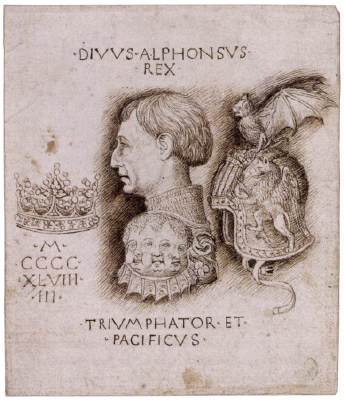 · DIVVS · ALPHONSVS ·
REX ·
· M ·
CCCC ·
· XLVIII ·
· III ·
· TRIVMPHATOR · ET ·
PACIFICVS ·